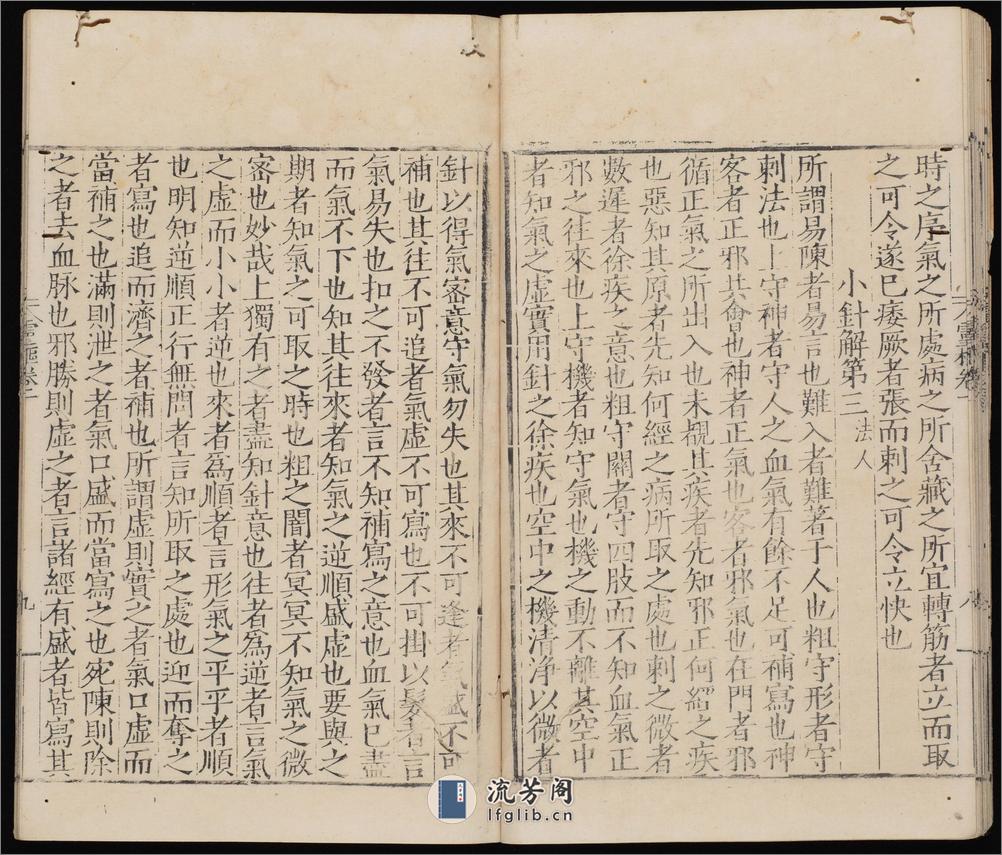 時之序氣之所處病之所舍藏之所宜轉筋者立而取
之可令遂已痿厥者張而刺之可令立快也
小針解第三法人
所謂易陳者易言也難入者難著于人也粗守形者守
刺法也上守神者守人之血氣有餘不足可補寫也神
客者正邪共會也神者正氣也客者邪氣也在門者邪
循正氣之所出入也未覩其疾者先知邪正何經之疾
也惡知其原者先知何經之病所取之處也刺之微者
數遲者徐疾之意也粗守關者守四肢而不知血氣正
邪之往來也上守機者知守氣也機之動不離其空中
者知氣之虛實用針之徐疾也空中之機清淨以微者
針以得氣密意守氣勿失也其來不可逢者氣盛不可
補也其往不可追者氣虛不可寫也不可掛以髮者言
氣易失也扣之不發者言不知補寫之意也血氣已盡
而氣不下也知其往來者知氣之逆順盛虛也要與之
期者知氣之可取之時也粗之闇者冥冥不知氣之微
密也妙哉上獨有之者盡知針意也往者爲逆者言氣
之虛而小小者逆也來者爲順者言形氣之平平者順
也明知逆順正行無問者言知所取之處也迎而奪之
者寫也追而濟之者補也所謂虛則實之者氣口虛而
當補之也滿則泄之者氣口盛而當寫之也宛陳則除
之者去血脉也邪勝則虛之者言諸經有盛者皆寫其
九
流芳阁
lfglib.cn